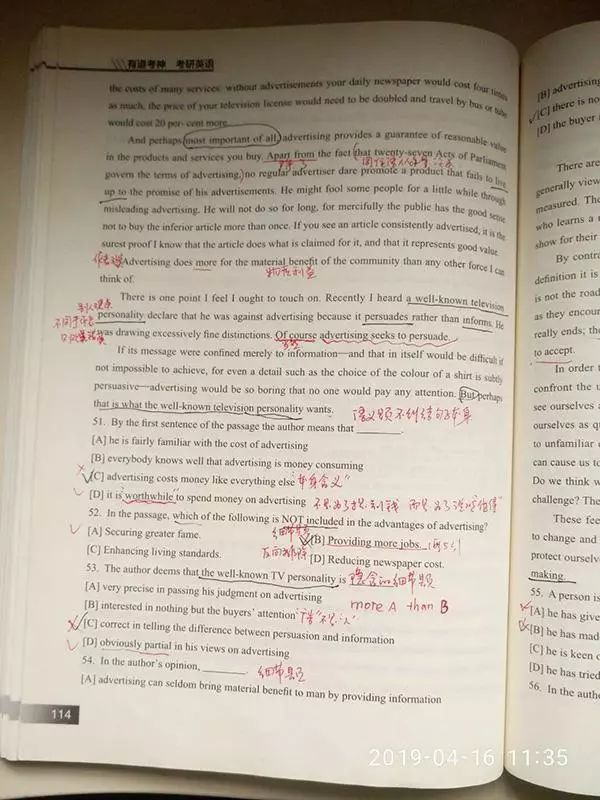 有道考神 考研英语
the costs of many services: without advertisements your daily newspaper would cost four times
as much, the price of your television license would need to be doubled and travel by bus or tube
would cost 20 per cent more.
And perhaps most important of all, advertising provides a guarantee of reasonable value
in the products and services you buy. Apart from the fact that twenty-seven Acts of Parliament
govern the terms of advertising, no regular advertiser dare promote a product that fails to live
up to the promise of his advertisements. He might fool some people for a little while through
misleading advertising. He will not do so for long, for mercifully the public has the good sense
not to buy the inferior article more than once. If you see an article consistently advertised, it is the
surest proof I know that the article does what is claimed for it, and that it represents good value.
Advertising does more for the material benefit of the community than any other force I can
think of.
物质利益
There is one point I feel I ought to touch on. Recently I heard a well-known television
personality declare that he was against advertising because it persuades rather than informs. He
was drawing excessively fine distinctions. Of course advertising seeks to persuade.
If its message were confined merely to information—and that in itself would be difficult if
not impossible to achieve, for even a detail such as the choice of the colour of a shirt is subtly
persuasive—advertising would be so boring that no one would pay any attention. But perhaps
that is what the well-known television personality wants.
51. By the first sentence of the passage the author means that
[A] he is fairly familiar with the cost of advertising
[B] everybody knows well that advertising is money consuming
[C] advertising costs money like everything else "本身含义"
[D] it is worthwhile to spend money on advertising
52. In the passage, which of the following is NOT included in the advantages of advertising?
[A] Securing greater fame. 细节题 [B] Providing more jobs.
[C] Enhancing living standards. [D] Reducing newspaper cost.
53. The author deems that the well-known TV personality is
[A] very precise in passing his judgment on advertising
more A than B
[B] interested in nothing but the buyers' attention
[C] correct in telling the difference between persuasion and information
[D] obviously partial in his views on advertising
54. In the author's opinion, 细节题
[A] advertising can seldom bring material benefit to man by providing information
114
[B] advertising
[C] there is no
[D] the buyer
There are
generally view
measured. The
who learns a
show for their
By contra
definition it is
is not the road
as they encour
really ends; the
to accept.
In order t
confront the u
see ourselves a
ourselves as qu
to unfamiliar
can cause us to
Do we think w
challenge? The
These feel
to change and
protect ourselve
making.
55. A person is
[A] he has give
[B] he has made
[C] he is keen o
[D] he has tried
56. In the autho
2019-04-16 11:35